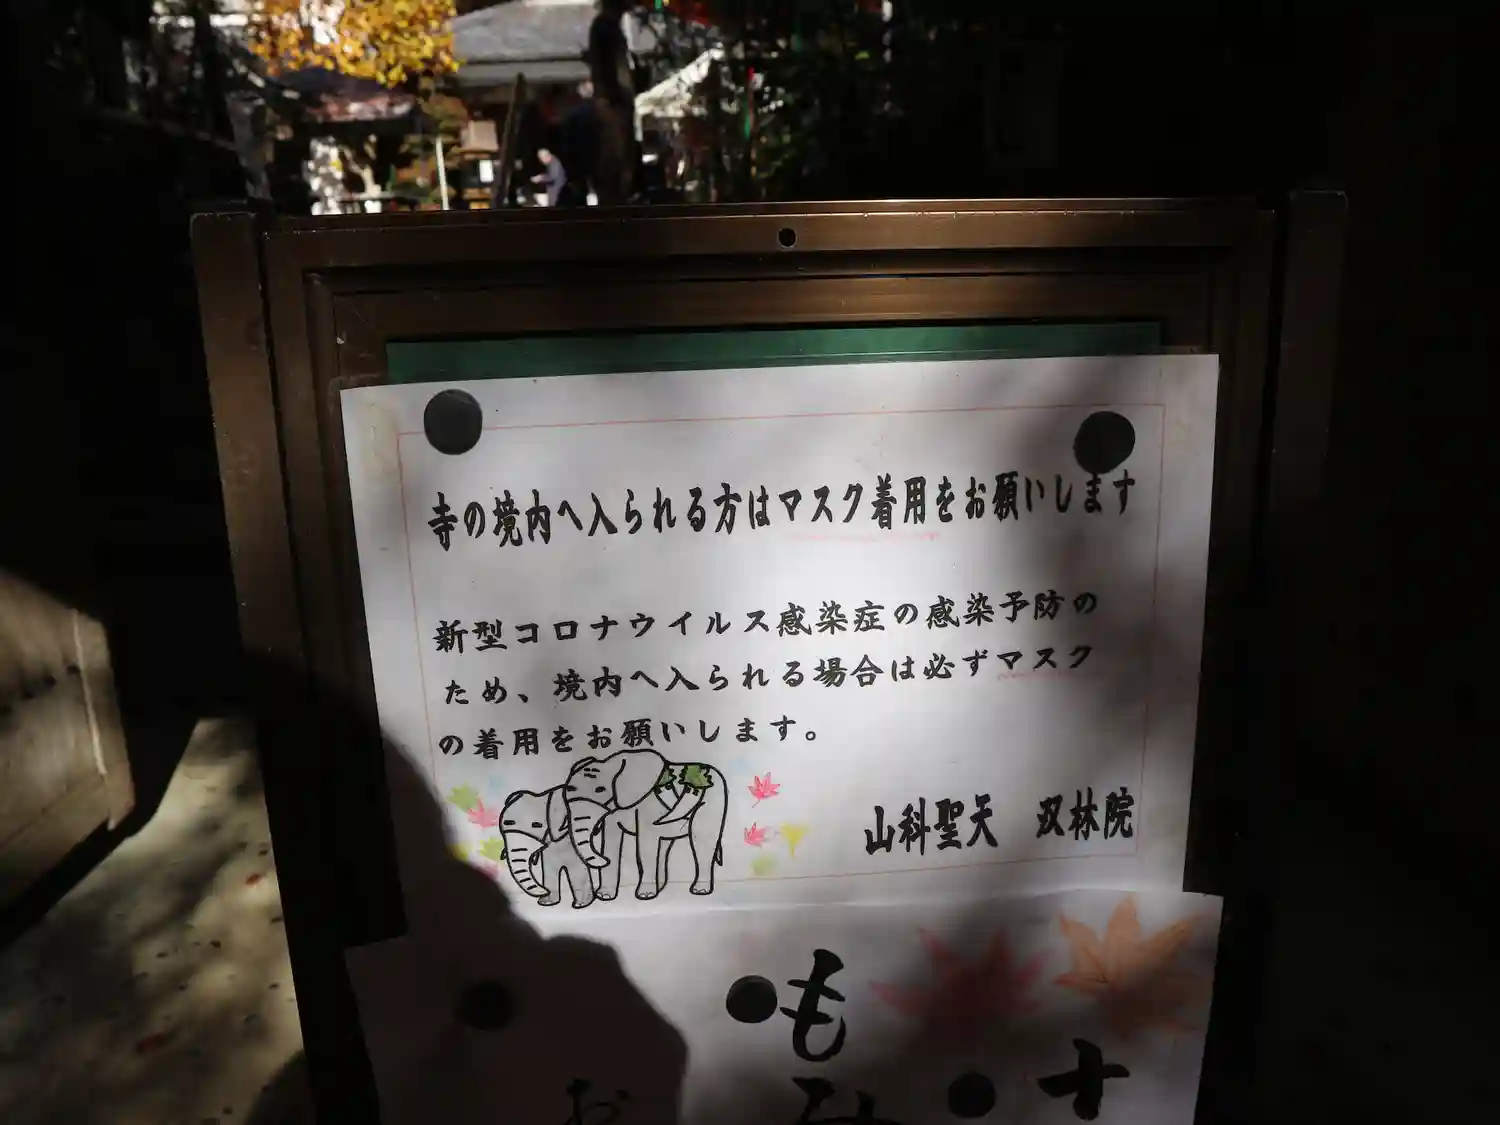 寺の境内へ入られる方はマスク着用をお願いします
新型コロナウイルス感染症の感染予防の
ため、境内へ入られる場合は必ずマスク
の着用をお願いします。
山科聖天　双林院
も
み
十
お